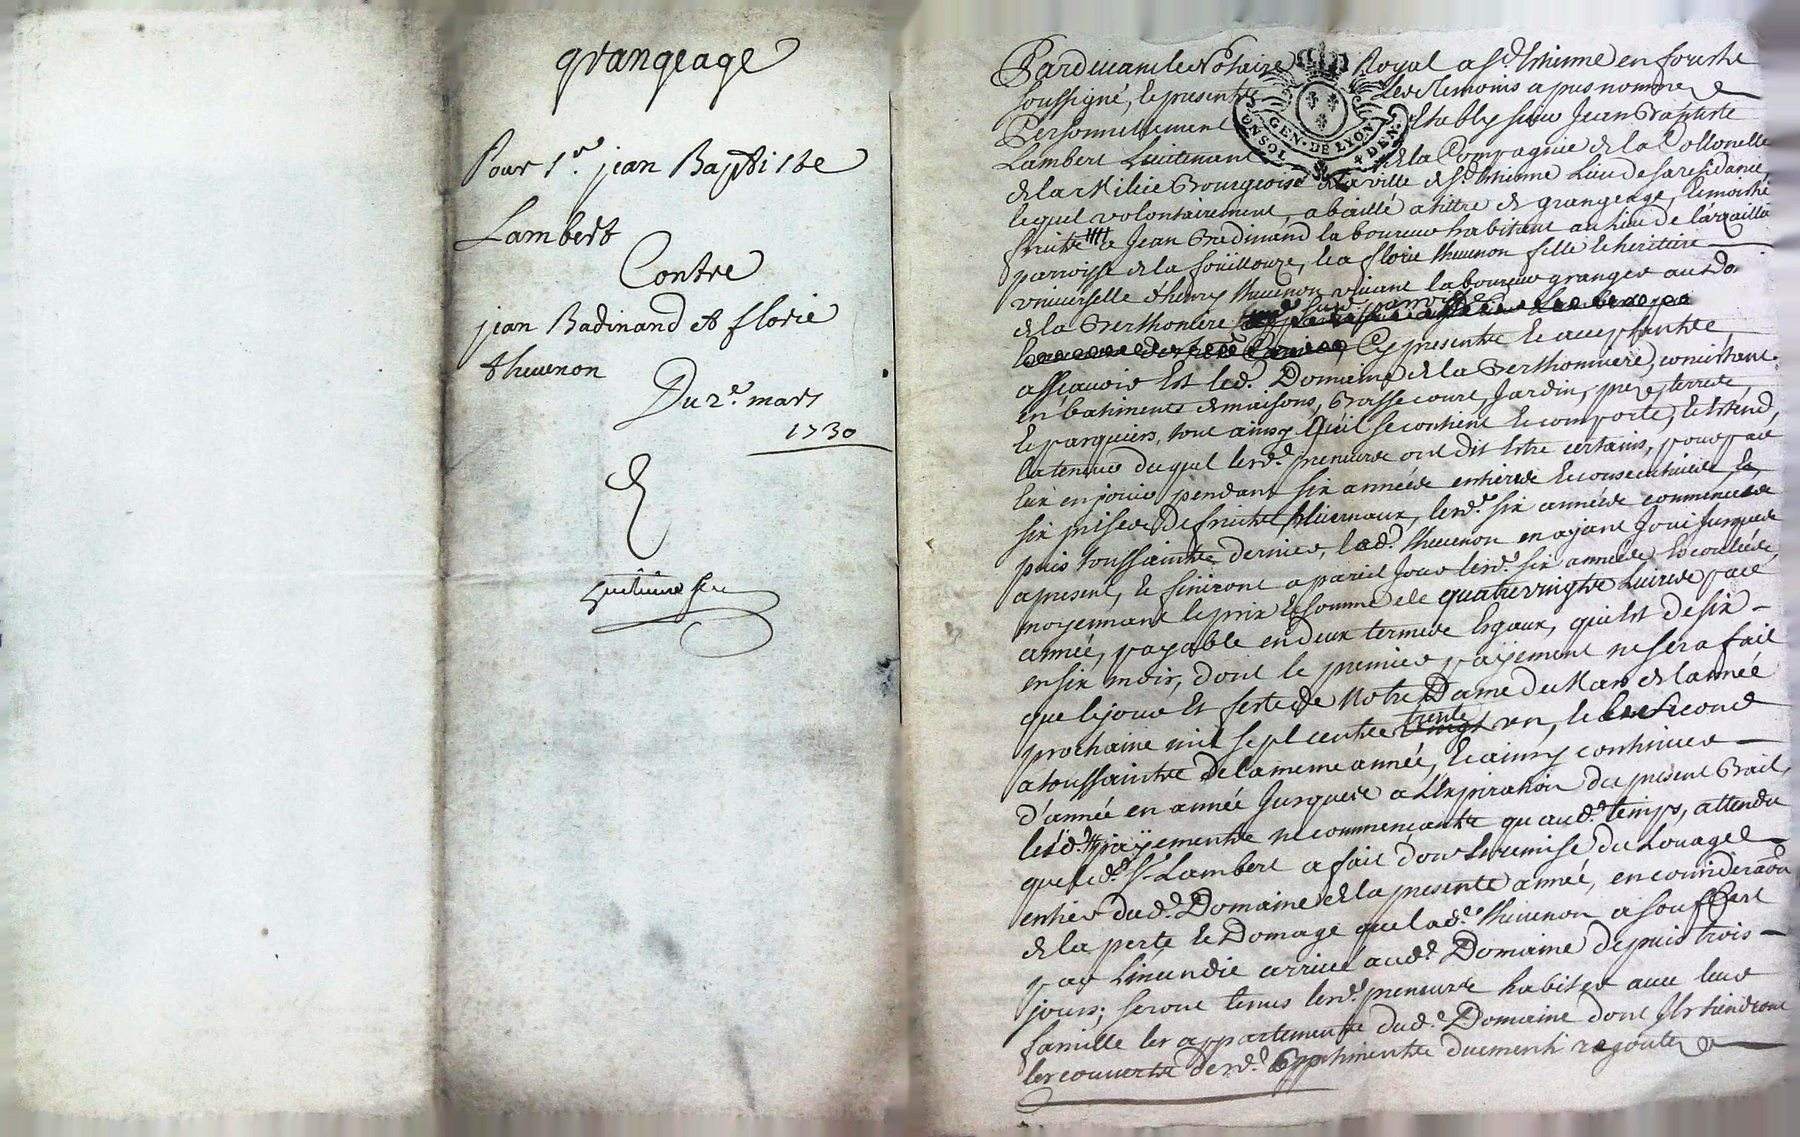 grangeage
Pour Sr. jean Baptiste
Lambert
Contre
jean Badinand et florie
thevenon
Du 2e. mars
1730
Pardevant le Notaire Royal a St. Etienne en fourche
soussigné, le presente Les temoins apres nommes
Personnellement Estably Sieur Jean Baptiste
Lambert Lieutenant de la Compagnie de la Collonelle
de la Milice Bourgeoise de la ville de St. Etienne Lieu de sa residance,
lequel volontairement, a baillé a tittre de grangeage, le moitié
fruits a Jean Badinand laboureur habitant au Lieu de
parroisse de la foüillouze, et a florie thevenon fille et heritiere
universelle d'henry thevenon vivant laboureur granger au Do.
de la Berthoniere, Cy presents et acceptants,
assçavoir Est led. Domaine de la Berthonniere, concistant
en batiments de maisons, Basse cour, Jardin, prez, terres,
et parquiers, tout ainsy Qu'il se contient et comporte, et s'étend,
la tenue duquel lesd. preneurs ont dit Estre certains, pour par
Eux en jouir pendant six années entieres et consecutives, et
six prises de fruits hivernaux, lesd. six années commencées
puis toussaints dernier, lad. thevenon en ayant Joui Jusques
a present, et finiront a pareil Jour lesd. six années Escoulées,
moyennant le prix et somme de quatrevingts Livres par
année, payable en deux termes Esgaux, qui est de six
en six mois, dont le premier payement ne sera fait
que le jour et feste de Notre Dame de Mars de l'année
prochaine mil sept cents trente un, et le second
a toussaints de la meme année, et ainsy continuer
d'année en année Jusques a l'Expiration du present Bail,
lesd. payements ne commencants qu'aud. temps, attendu
que led. Sr. Lambert a fait don et remise du Louage
entier dud. Domaine de la presente année, en consideraon
de la perte et Domage que lad. thevenon a souffert
par L'incendie arrivé aud. Domaine depuis trois
jours; seront tenus lesd. preneurs habiter avec leur
famille les appartements dud. Domaine dont Ils tiendront
les couverts desd. Batiments duement regoutés
GEN. DE LYON
UN SOL 4 DEN.